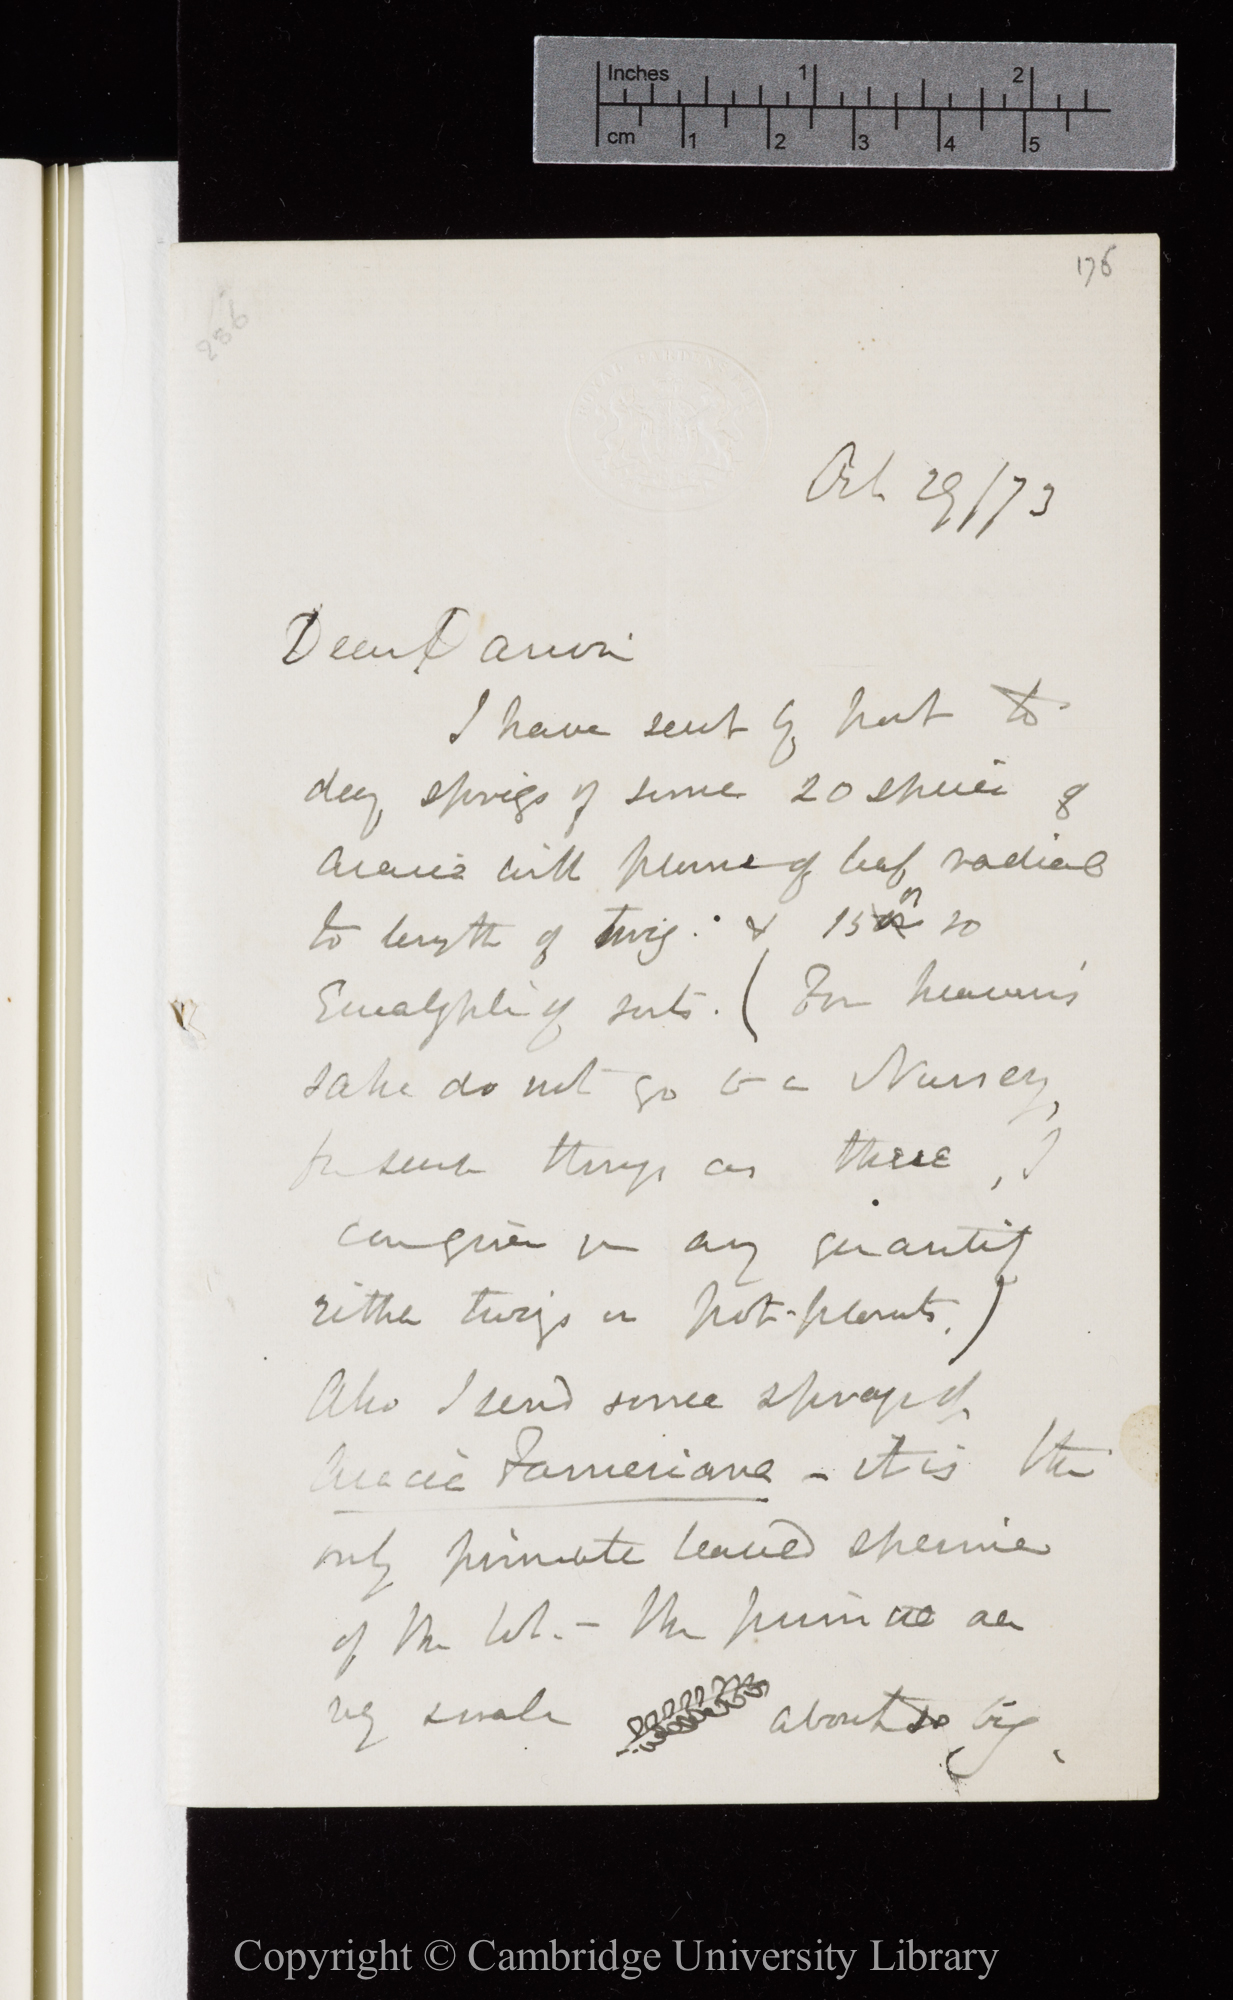 Inches 1 2
cm 1 2 3 4 5
176
286
ROYAL GARDENS KEW
Oct. 29/73
Dear Darwin
I have sent by post to
day sprigs of some 20 species of
Acacia with plane of leaf radial
to length of twig. & 15 or so
Eucalypti of sorts. (For heaven's
sake do not go to a Nursery
for such things as these, I
can give you any quantity
either twigs or pot-plants.)
Also I send some sprays of
Acacia Farnesiana — it is the
only pinnate leaved species
of the lot. — the pinnae are
very small about so big.
Copyright © Cambridge University Library